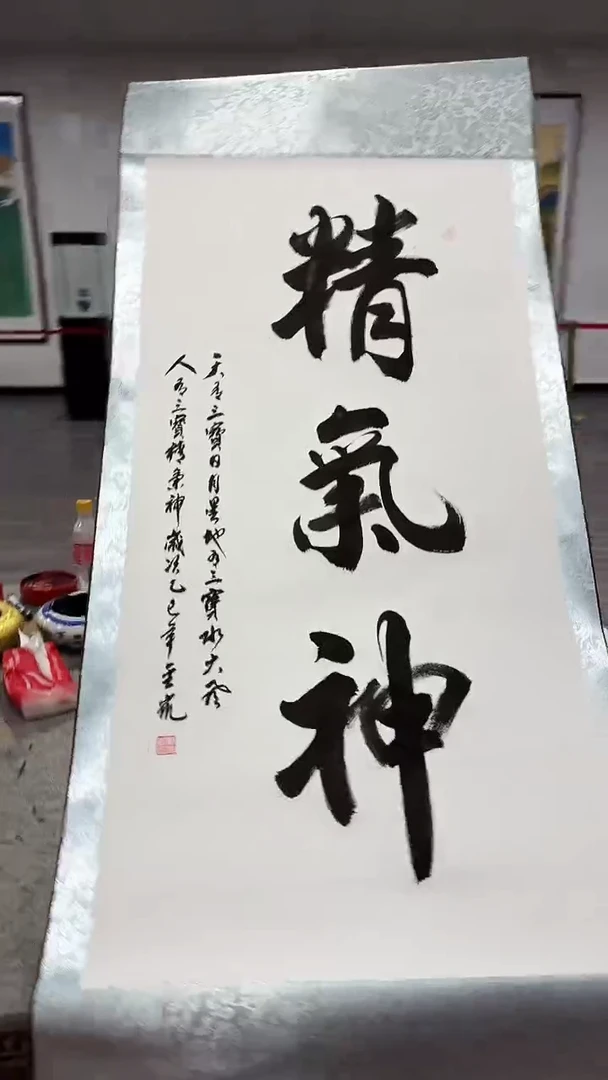 精氣神
天有三寶日月星地有三寶水火風
人有三寶精氣神歲次乙巳年